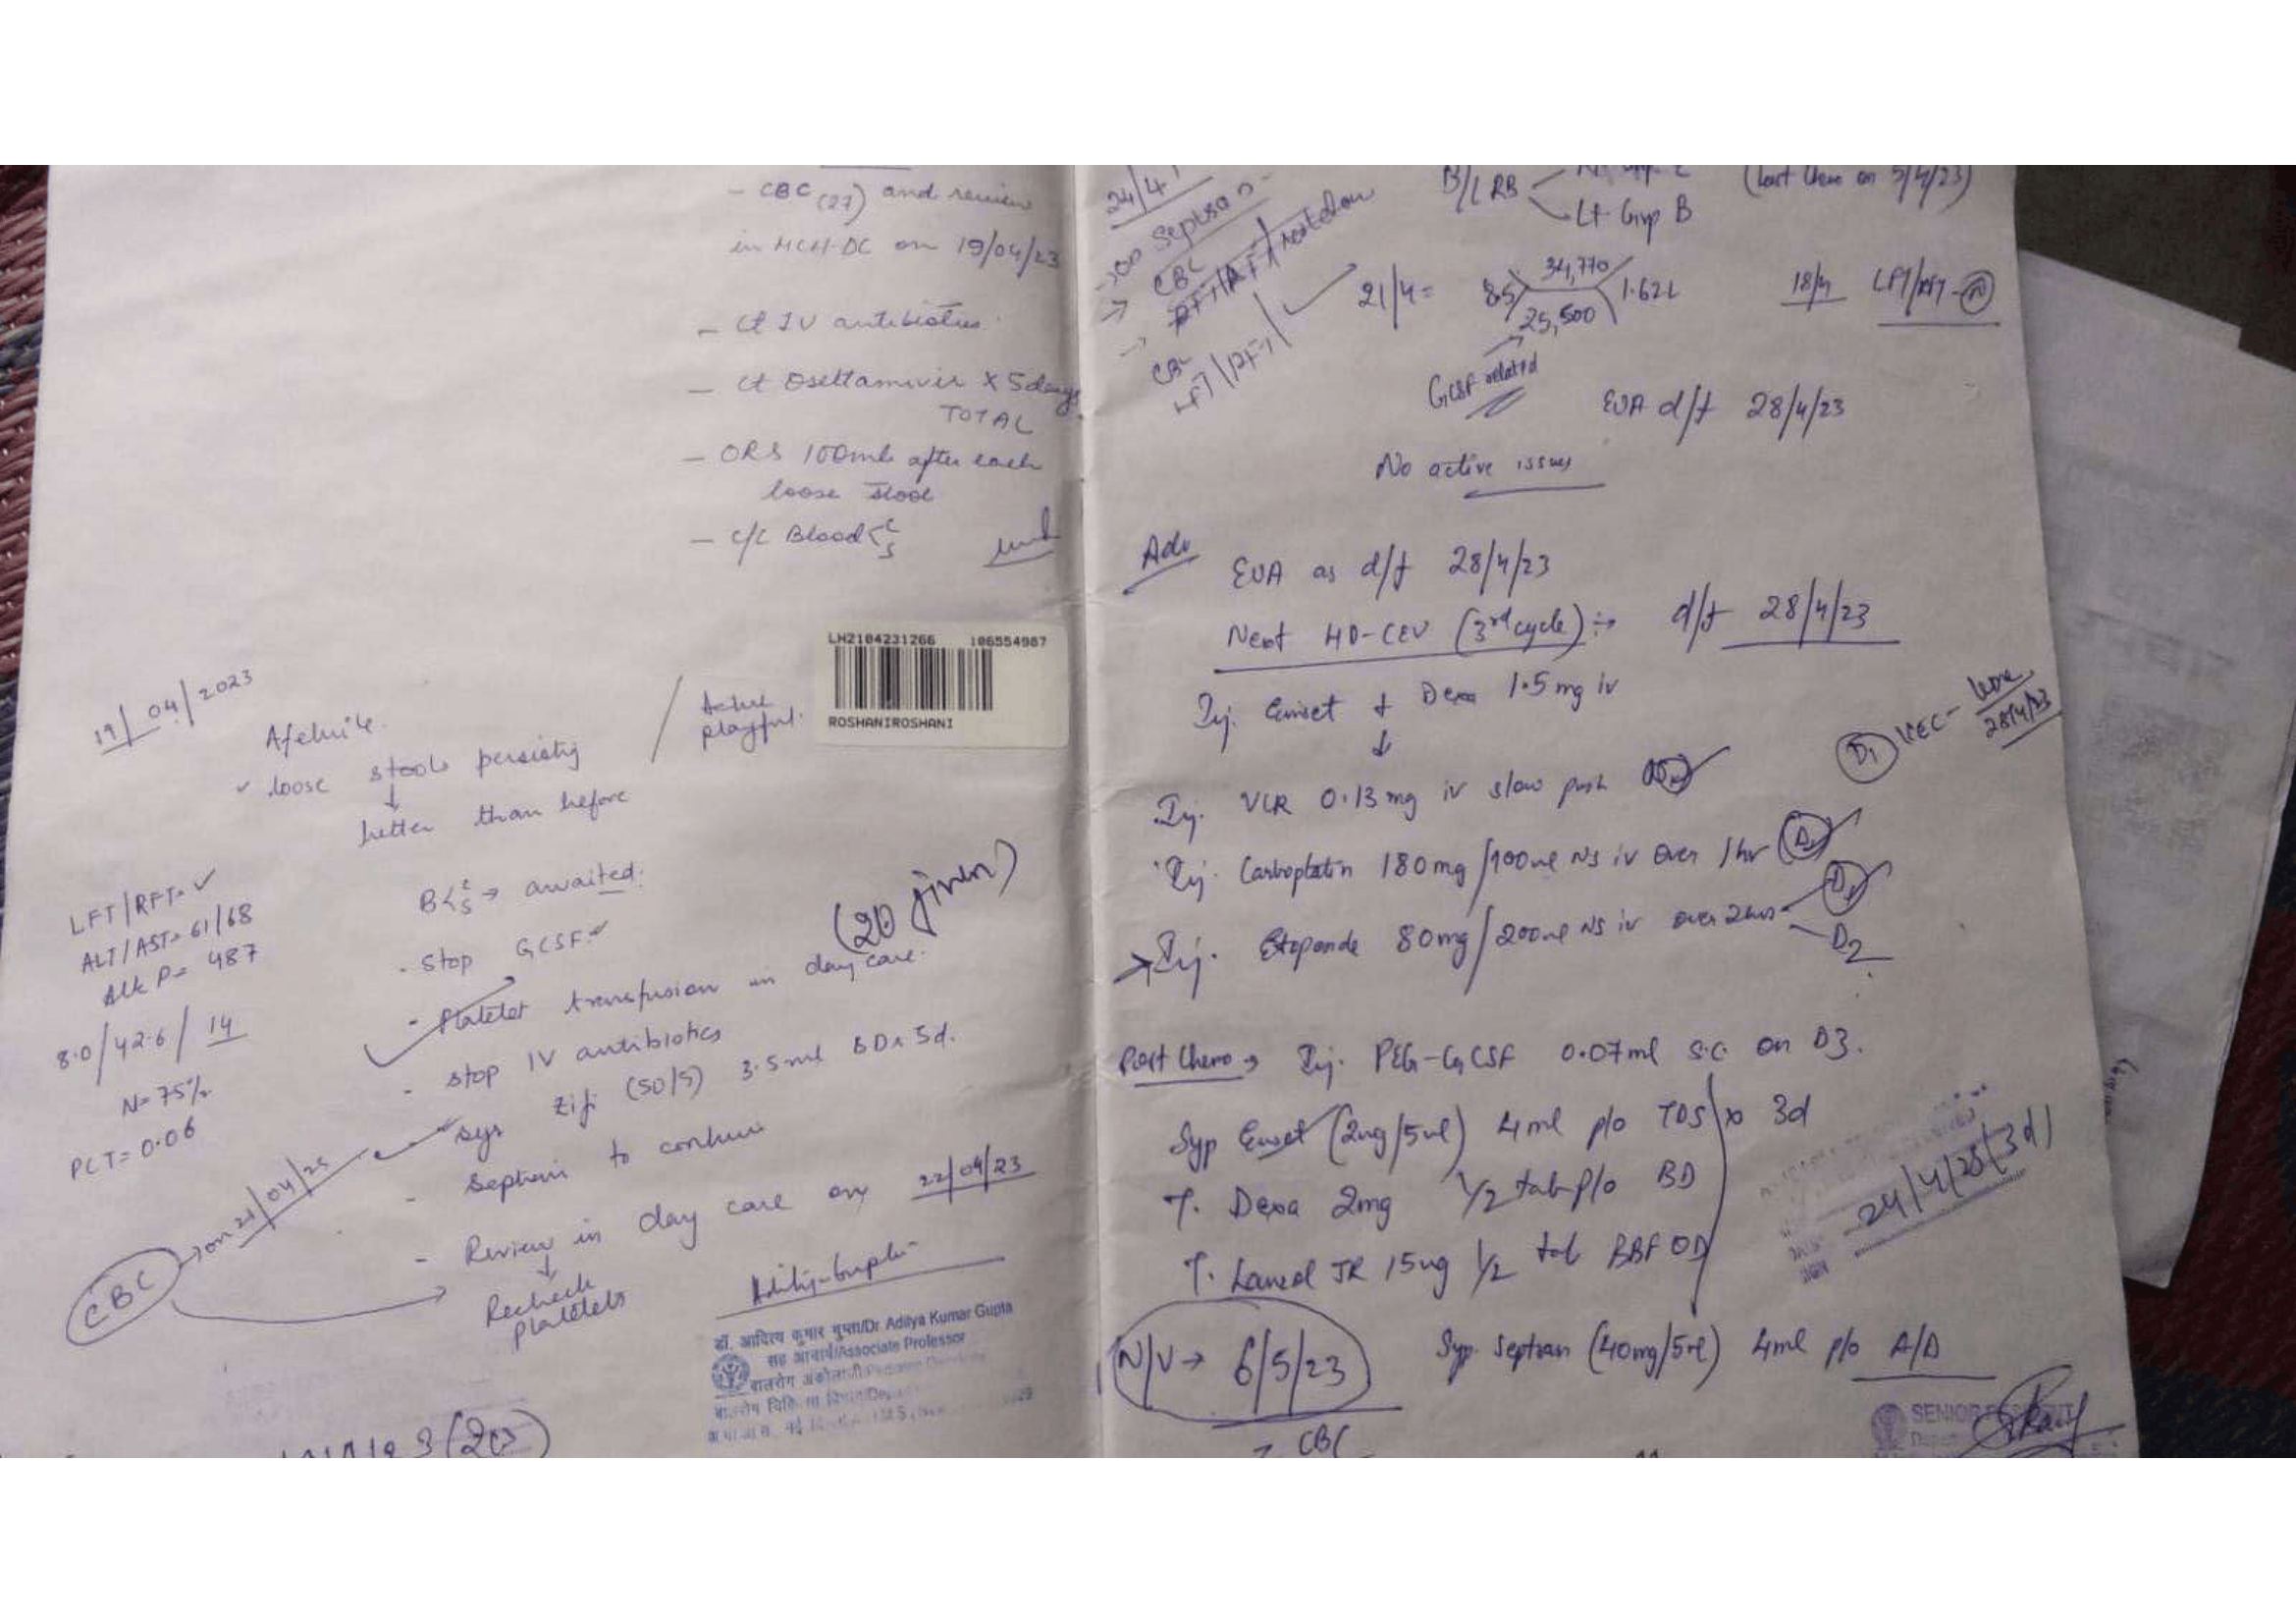 - CBC (27) and review
in MCH-DC on 19/04/23
- Ct IV antibiotics
- Ct Oseltamivir X 5days
TOTAL
- ORS 100ml after each
loose stool
- C/C Blood C S
LH2104231266 106554987
ROSHANIROSHANI
19/04/2023
Afebrile.
loose stools persisting
↓
better than before
Active
playful.
LFT/RFT- ✓
ALT/AST= 61/68
Alk P= 487
8.0/42.6/14
N= 75%
PCT= 0.06
CBC → on 21/04/23
B C S → awaited.
- Stop GCSF ✓
(20 given)
- Platelet transfusion in day care.
- Stop IV antibiotics
- Syp Zifi (50/5) 3.5ml BD x 5d.
- Septran to continue
- Review in day care on 22/04/23
↓
Recheck
platelets
डॉ. आदित्य कुमार गुप्ता/Dr Aditya Kumar Gupta
सह आचार्य/Associate Professor
24/4
Septran
CBC
CBC
LFT/RFT
B/L RB
Lt Grp B
(last chemo on 5/4/23)
21/4 = 8.5 34,770 25,500 1.62L
18/4 LFT/RFT - N
GCSF related
EUA d/t 28/4/23
No active issues
Adv
EUA as d/t 28/4/23
Next HD-CEV (3rd cycle) → d/t 28/4/23
Inj. Emset + Dexa 1.5mg iv
↓
D1 VEC - 28/4/23
Inj. VCR 0.13mg iv slow push
Inj. Carboplatin 180mg/100ml NS iv over 1hr D1
→ Inj. Etoposide 80mg/200ml NS iv over 2hrs D1
D2
Post Chemo → Inj. PEG-GCSF 0.07ml s.c. on D3.
Syp Emset (2mg/5ml) 4ml p/o TDS x 3d
T. Dexa 2mg 1/2 tab p/o BD
T. Lanzol JR 15mg 1/2 tab BBF OD
24/4/23 (3d)
N/V → 6/5/23
Syp. Septran (40mg/5ml) 4ml p/o A/D
CBC
SENIOR RESIDENT